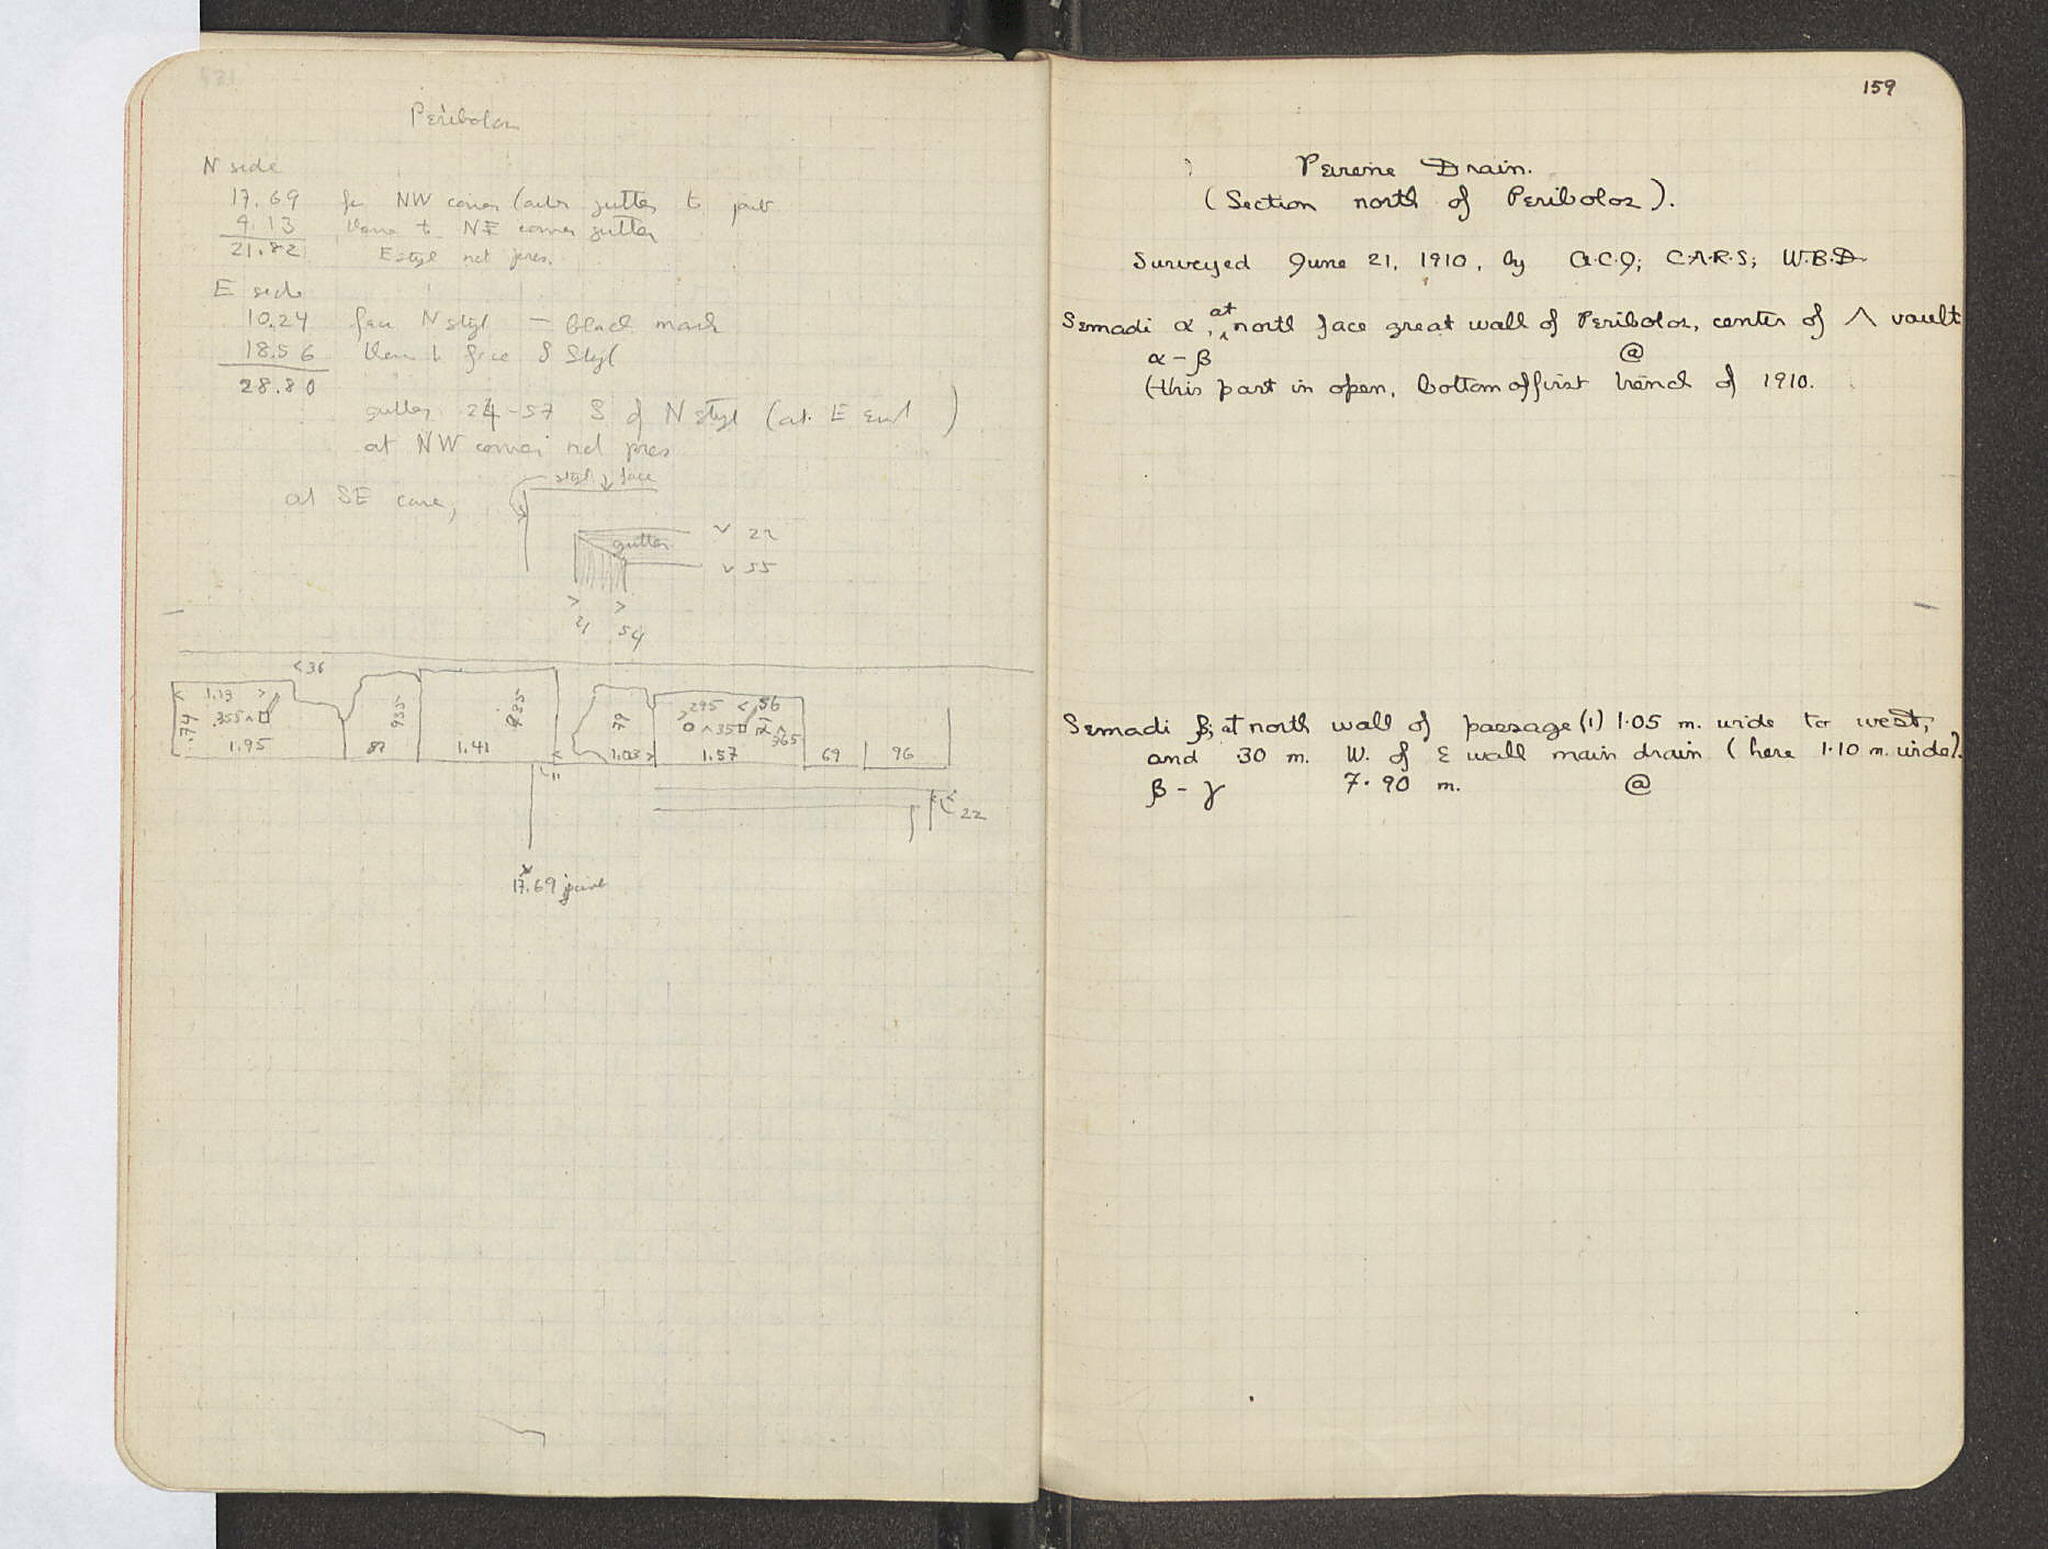 Peribolos
N side
17.69 fr NW corner (outer gutter to joint
4.13 thence to NE corner gutter
21.82 E styl not pres.
E side
10.24 face N styl — black mark
18.56 thence to face S Styl
28.80
gutter 24-57 S of N styl (at E end )
at NW corner not pres
styl. face
at SE corner,
gutter
22
55
21 54
<36
1.13
.74
.355
1.95
87
.935
1.41
79
1.03
.295 <.56
.35
.365
1.57
69
96
11
22
17.69 joint
159
Peirene Drain.
(Section north of Peribolos).
Surveyed June 21, 1910, by A.C.J; C.A.R.S; W.B.D
Semadi α, at north face great wall of Peribolos, center of Λ vault
α - β @
(this part in open, bottom of first trench of 1910.
Semadi β; at north wall of passage (1) 1.05 m. wide to west,
and 30 m. W. of E wall main drain (here 1.10 m. wide).
β - γ 7.90 m. @